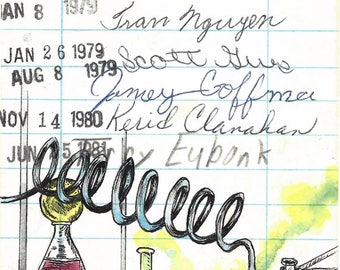 JAN 8 1979 Tran Nguyen
JAN 26 1979 Scott
AUG 8 1979 Jamey Coffman
NOV 14 1980 Kerid Clanahan
JUN 1981 Eubank